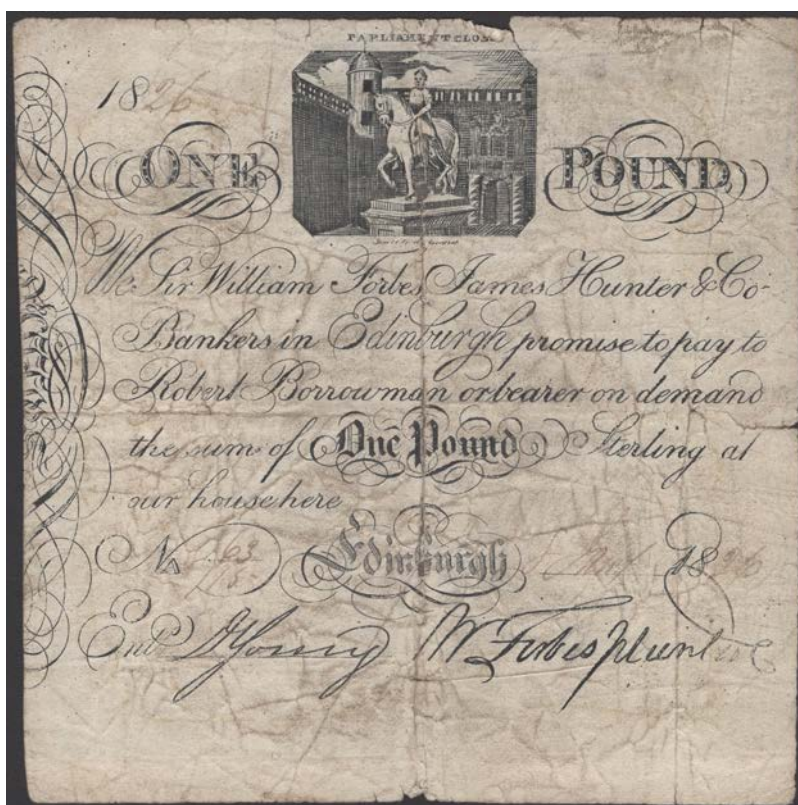 PARLIAMENT CLOS
1826
ONE POUND
We Sir William Forbes James Hunter & Co
Bankers in Edinburgh promise to pay to
Robert Borrowman or bearer on demand
the sum of One Pound Sterling at
our house here
No Edinburgh 1826
Entd D Young Wm Forbes J Hunter & Co